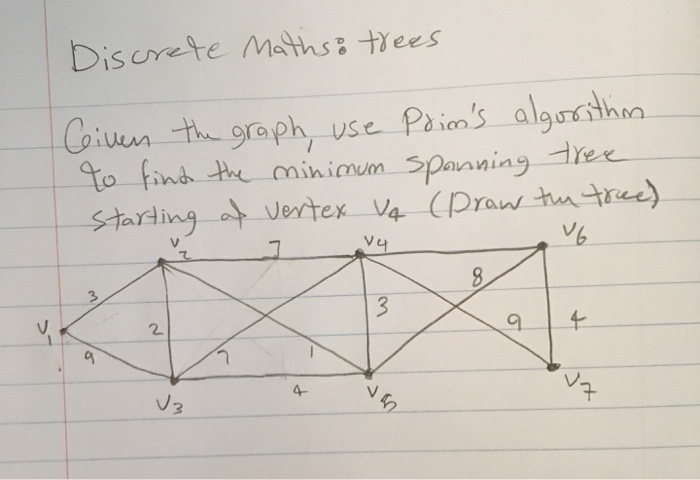 Discrete Maths: trees
Given the graph, use Prim's algorithm
to find the minimum spanning tree
starting at vertex V4 (Draw the tree)
V2 7 V4 V6
3 8
V1 2 3 9 4
9 7 1
V3 4 V5 V7